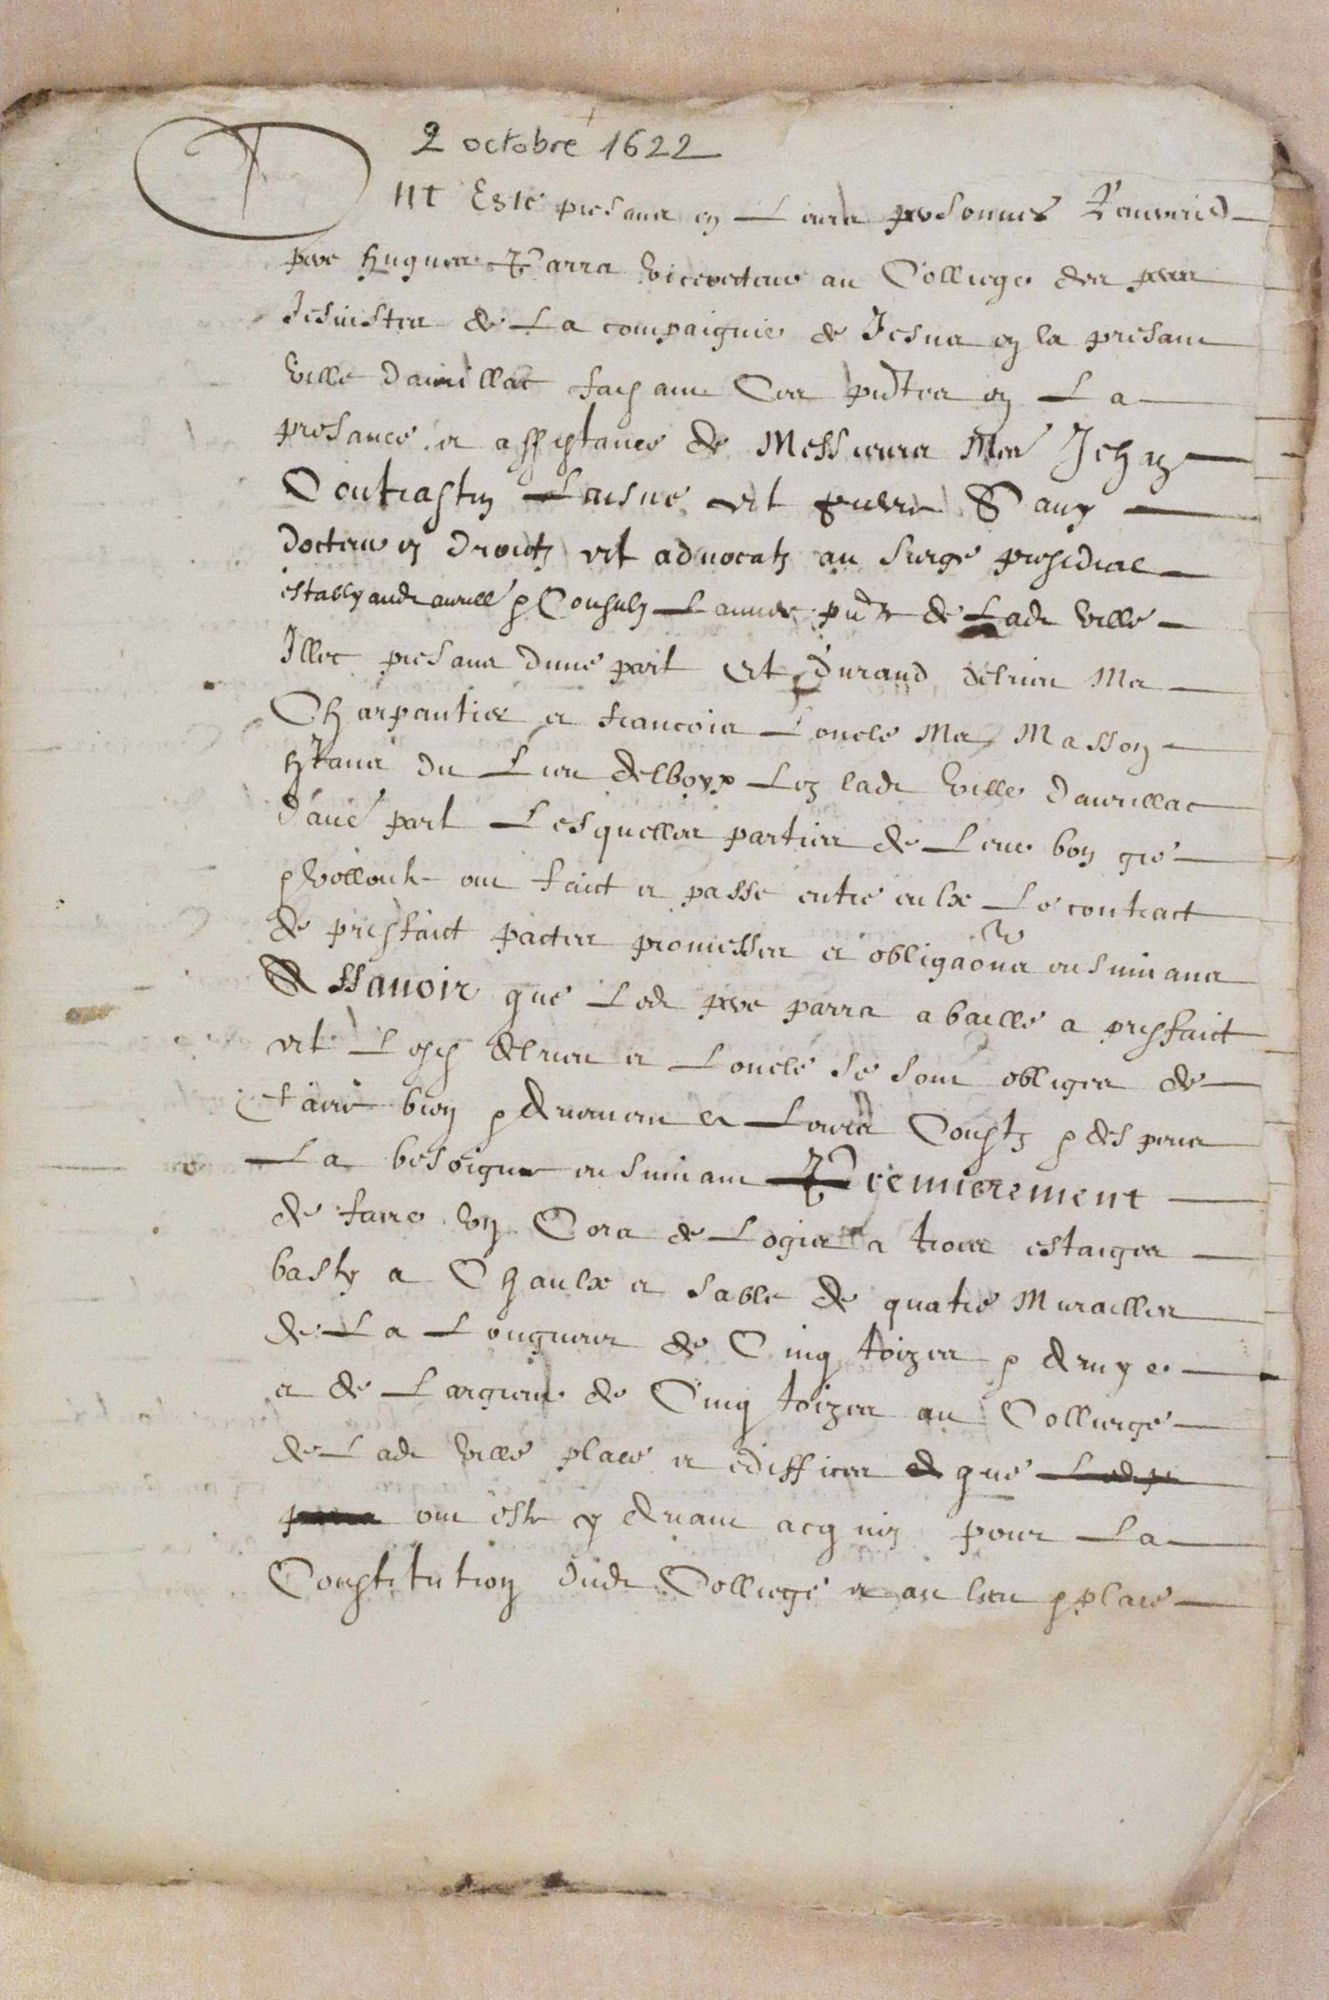 2 octobre 1622
Ont Esté presans en Leurs personnes Reverend
pere Hugues Parra vicerecteur au Colliege des peres
Jesuistes de La compaignie de Jesus en la presant
ville daurillac faisant Ces pntes en La
presance et assistance de Messieurs Mes Jehan
Contrastin Laisné et pierre Sauy
docteurs en droictz et advocatz au siege presidial
estably aud aurill & Consulz Lannee pnte de Lade ville
Illec presans dune part Et Durand delrieu Me
Charpantier et francois Loucle Me Masson
htans du Lieu delboyx Lez lade ville daurillac
dautre part Lesquelles parties de Leur bon gré
& vollonte ont faict et passe entre eulx Le contract
de prisfaict pactes promesses et obligaons ensuivans
Assavoir que Led pere parra a baillé a prisfaict
et Lesds delrieu et Loucle se sont obliges de
faire bien & deuement a Leurs Coustz & despens
La besoigne ensuivant Premierement
de faire un Cors de Logis a trois estaiges
basty a Chaulx et sable de quatre Murailles
de La Longueur de Cinq toizes & demye
et de Largeur de Cinq toizes au Colliege
de Lade ville place et ediffices que
ont esté cy devant acquis pour La
Constitution dud Colliege et au lieu & place